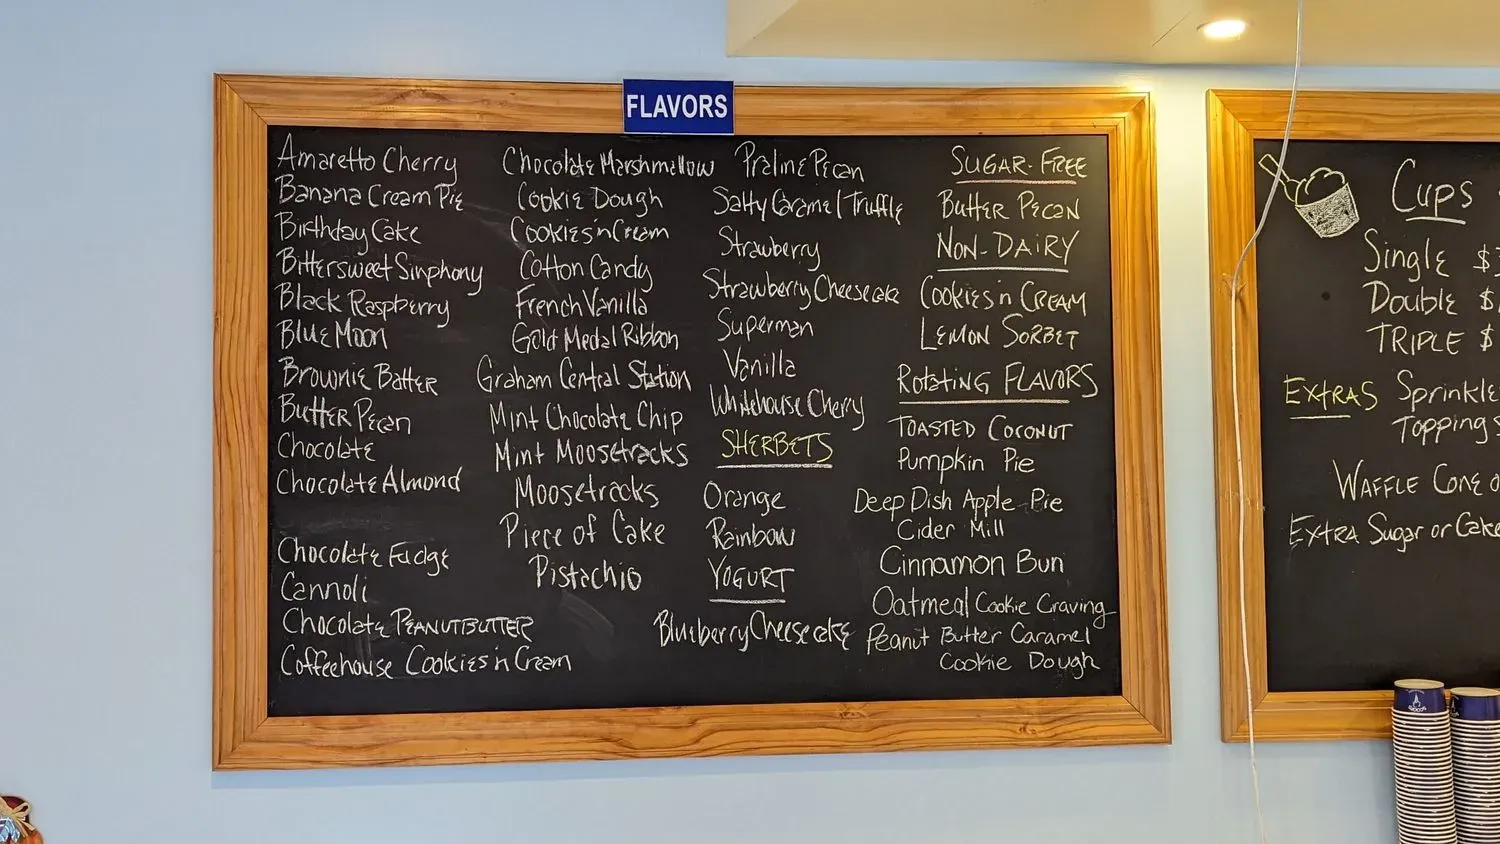 FLAVORS
Amaretto Cherry
Banana Cream Pie
Birthday Cake
Bittersweet Sinphony
Black Raspberry
Blue Moon
Brownie Batter
Butter Pecan
Chocolate
Chocolate Almond
Chocolate Fudge
Cannoli
Chocolate PEANUTBUTTER
Coffeehouse Cookies'n Cream
Chocolate Marshmallow
Cookie Dough
Cookies'n Cream
Cotton Candy
French Vanilla
Gold Medal Ribbon
Graham Central Station
Mint Chocolate Chip
Mint Moosetracks
Moosetracks
Piece of Cake
Pistachio
Praline Pecan
Salty Caramel Truffle
Strawberry
Strawberry Cheesecake
Superman
Vanilla
Whitehouse Cherry
SHERBETS
Orange
Rainbow
YOGURT
Blueberry Cheesecake
SUGAR-FREE
BUTTER PECAN
NON-DAIRY
COOKIES'n CREAM
LEMON SORBET
ROTATING FLAVORS
TOASTED COCONUT
Pumpkin Pie
Deep Dish Apple Pie
Cider Mill
Cinnamon Bun
Oatmeal Cookie Craving
Peanut Butter Caramel
Cookie Dough
Cups
Single $3
Double $
TRIPLE $
EXTRAS Sprinkle
Toppings
WAFFLE CONE o
EXTRA Sugar or Cake